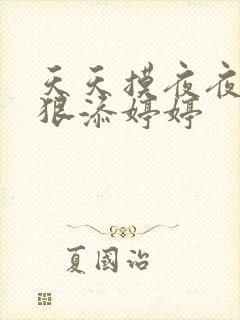 天天摸夜夜
狠添婷婷
夏國治